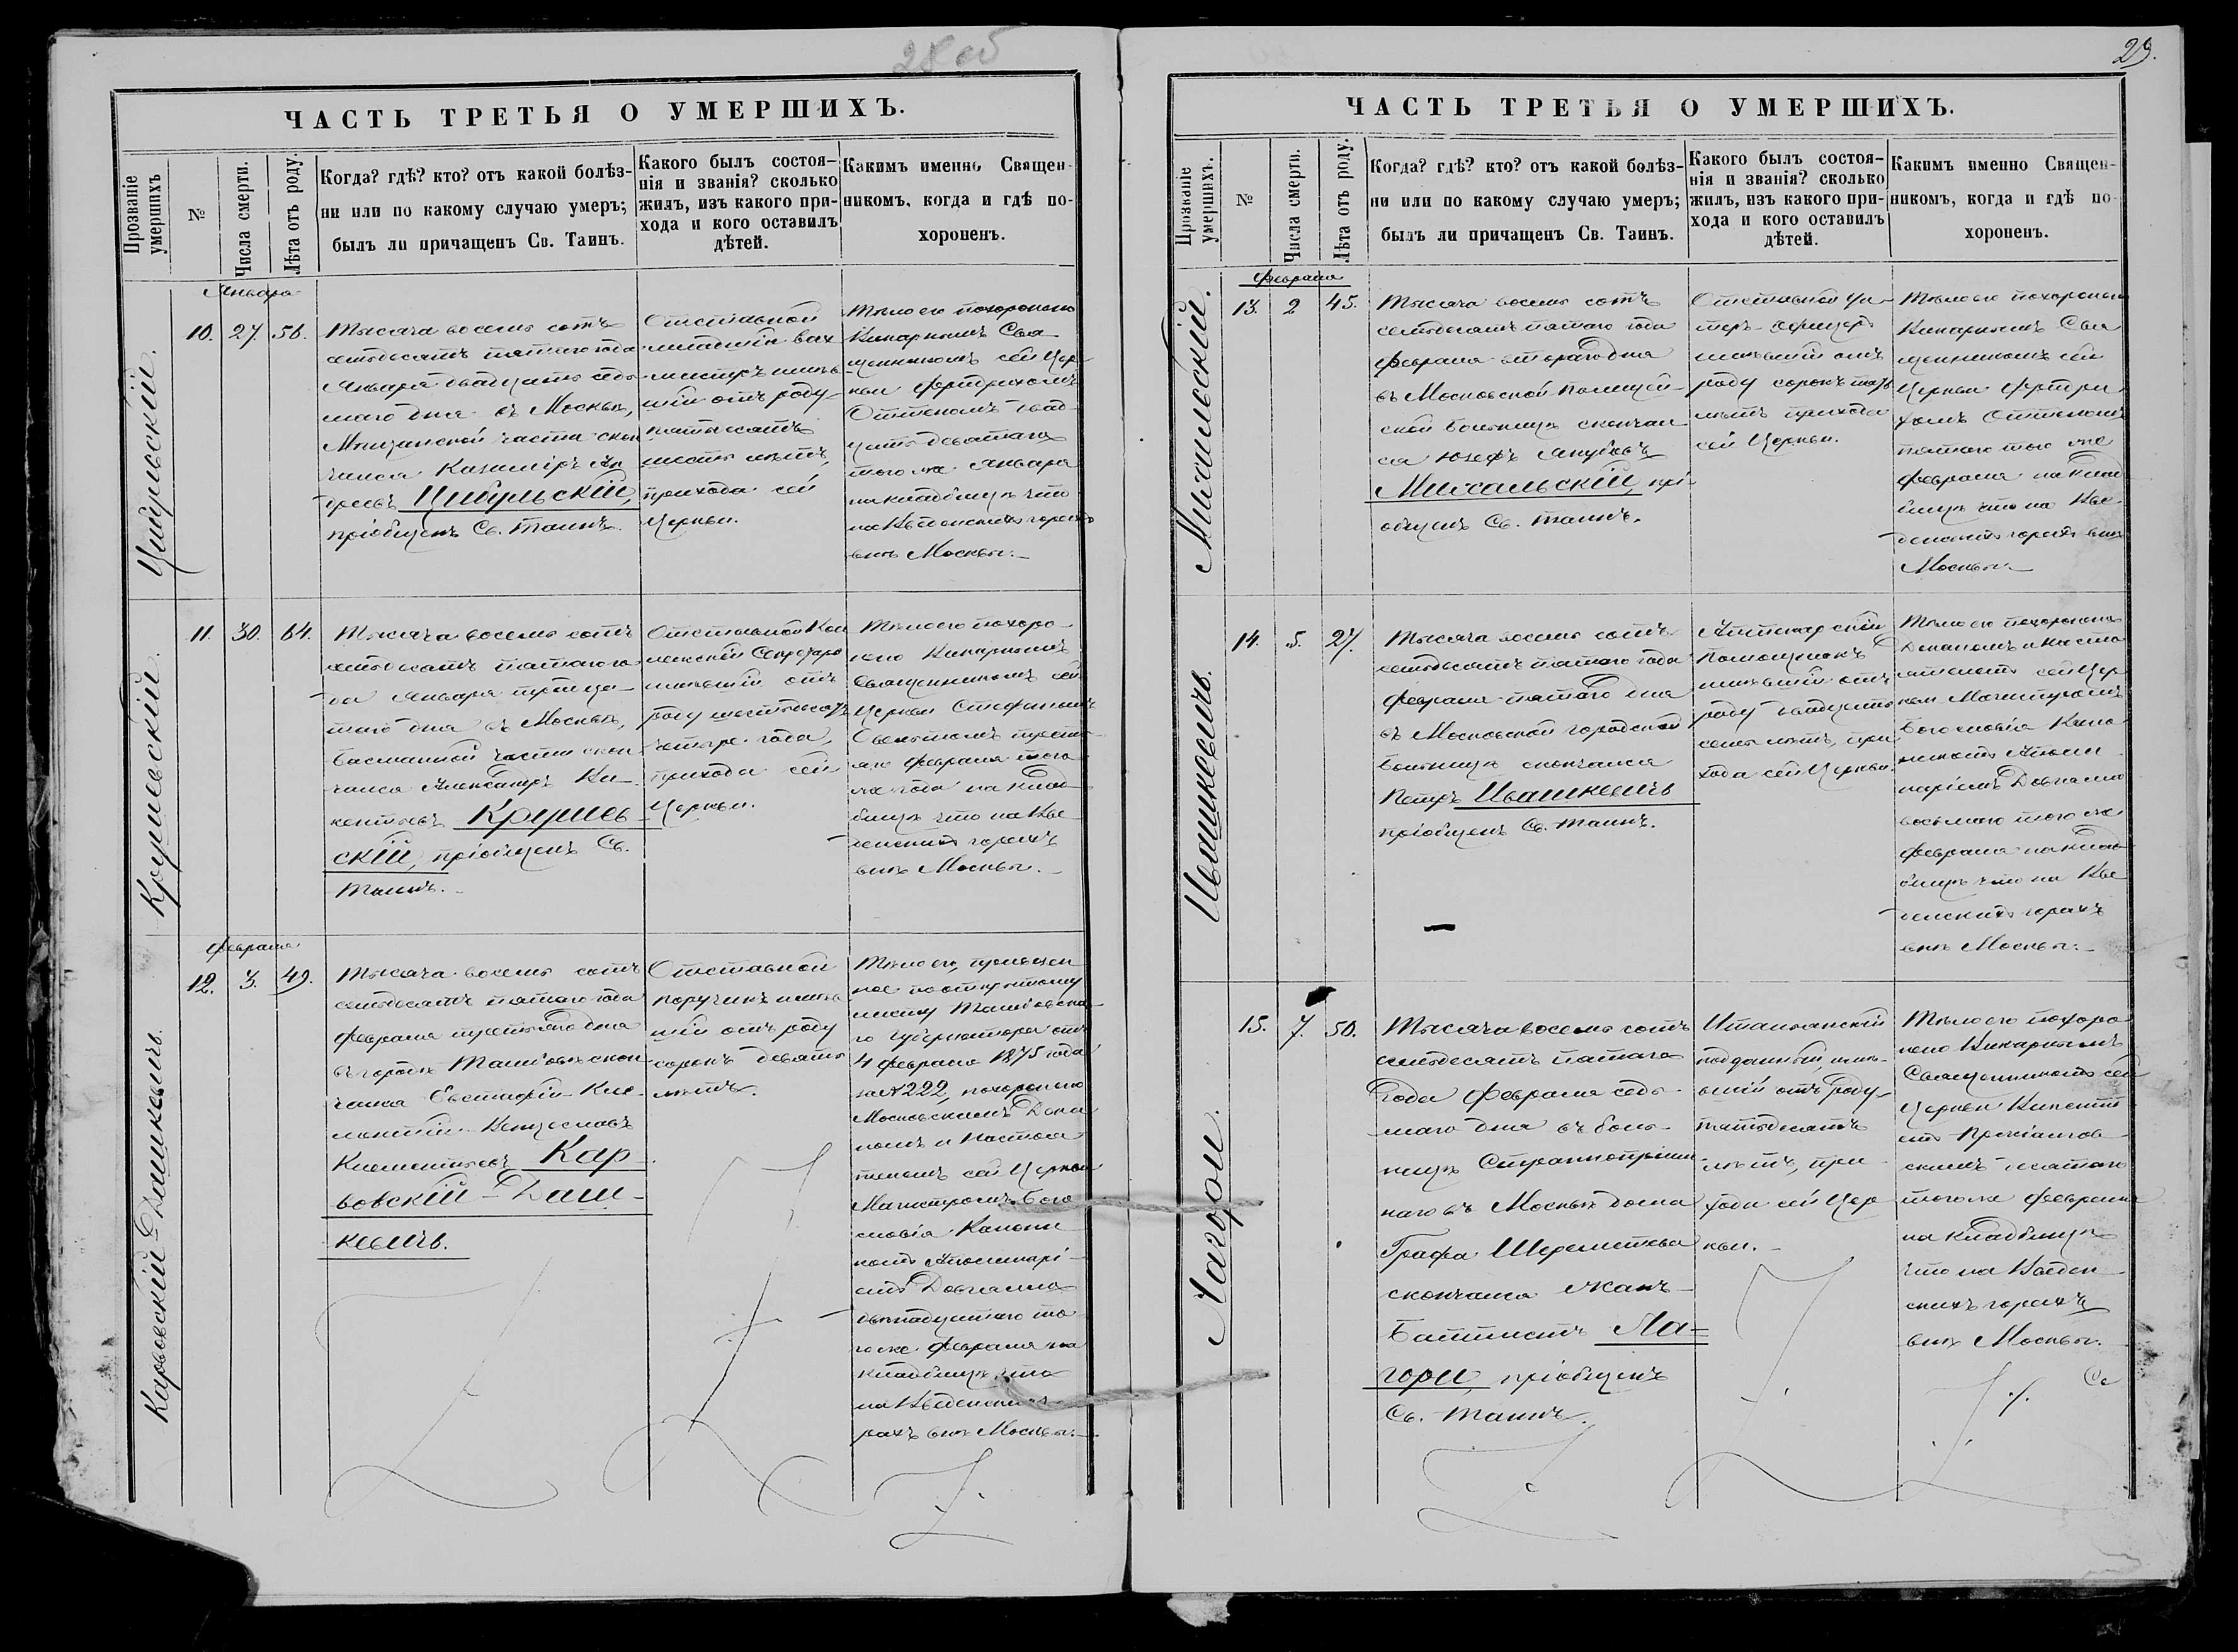 28 об
ЧАСТЬ ТРЕТЬЯ О УМЕРШИХЪ.
Прозваніе умершихъ
№
Числа смерти.
Лѣта отъ роду.
Когда? гдѣ? кто? отъ какой болѣз-
ни или по какому случаю умеръ;
былъ ли причащенъ Св. Таинъ.
Какого былъ состоя-
нія и званія? сколько
жилъ, изъ какого при-
хода и кого оставилъ
дѣтей.
Каким именно Священ-
никомъ, когда и гдѣ по-
хороненъ.
Января
Цибульскій.
10. 27. 56.
Тысяча восемь сотъ
семьдесятъ пятаго года
Января двадцать седь-
маго дня въ Москвѣ,
Мѣщанской части скон
чался Казиміръ Ан
дреевъ Цибульскій,
пріобщенъ Св. Таинъ.
Отставной
младшій вах
мистръ имѣв
шій отъ роду
пятьдесятъ
шесть лѣтъ,
прихода сей
Церкви.
Тѣло его похоронено
Викарнымъ Свя
щенникомъ сей Цер
кви Фридрихомъ
Оттономъ двад
цать девятаго
того же Января
на кладбищѣ что
на Введенскихъ горахъ
внѣ Москвы.
Крушевскій.
11. 30. 64.
Тысяча восемь сотъ
семьдесятъ пятаго го
да Января тридца
таго дня въ Москвѣ,
Басманной части скон
чался Александръ Ви
кентьевъ Крушев
скій, пріобщенъ Св.
Таинъ.
Отставной Кол
лежскій Секретарь
имѣвшій отъ
роду шестьдесятъ
четыре года,
прихода сей
Церкви.
Тѣло его похоро
нено Викарнымъ
Священникомъ сей
Церкви Стефаномъ
февраля того
же года на клад
бищѣ что на Вве
денскихъ горахъ
внѣ Москвы.
Февраля
Карвовскій-Дашкевичъ.
12. 3. 49.
Тысяча восемь сотъ
семьдесятъ пятаго года
Февраля третьяго дня
въ городѣ Тамбовѣ скон
чался Евстафій-Кле-
ментій-Венцеславъ
Клементьевъ Кар
вовскій-Даш-
кевичъ.
Отставной
поручикъ имѣв
шій отъ роду
сорокъ девять
лѣтъ.
Тѣло его, привезен
ное по открытому
листу Тамбовска
го Губернатора отъ
4 февраля 1875 года
за № 222, похоронено
Московскимъ Дека
номъ и Настоя
телемъ сей Церкви
Магистромъ Бого
словія Канони
комъ Аполинарі
емъ Довгялло
двѣнадцатаго то
го же Февраля на
кладбищѣ что
на Введенскихъ го
рахъ внѣ Москвы.
29.
ЧАСТЬ ТРЕТЬЯ О УМЕРШИХЪ.
Прозваніе умершихъ.
№
Числа смерти.
Лѣта отъ роду.
Когда? гдѣ? кто? отъ какой болѣз-
ни или по какому случаю умеръ;
былъ ли причащенъ Св. Таинъ.
Какого былъ состоя-
нія и званія? сколько
жилъ, изъ какого при-
хода и кого оставилъ
дѣтей.
Какимъ именно Священ-
никомъ, когда и гдѣ по-
хороненъ.
Февраля
Михальскій.
13. 2 45.
Тысяча восемь сотъ
семьдесятъ пятаго года
Февраля втораго дня
въ Московской Полицей-
ской Больницѣ скончал
ся Юзефъ Якубовъ
Михальскій, прі
общенъ Св. Таинъ.
Отставной Ун-
теръ-Офицеръ
имѣвшій отъ
роду сорокъ пять
лѣтъ прихода
сей Церкви.
Тѣло его похоронено
Викарнымъ Свя
щенникомъ сей
Церкви Фридри
хомъ Оттономъ
пятаго того же
Февраля на клад
бищѣ что на Вве-
денскихъ горахъ внѣ
Москвы.
Ивашкевичъ.
14. 5. 27.
Тысяча восемь сотъ
семьдесятъ пятаго года
Февраля пятаго дня
въ Московской городской
больницѣ скончался
Петръ Ивашкевичъ
пріобщенъ Св. Таинъ.
Аптекарскій
Помощникъ
имѣвшій отъ
роду двадцать
семь лѣтъ, при
хода сей Церкви.
Тѣло его похоронено
Деканомъ и Насто
ятелемъ сей Цер
кви Магистромъ
Богословія Кано
никомъ Аполи
наріемъ Довгялло
восьмаго того же
Февраля на клад
бищѣ что на Вве
денскихъ горахъ
внѣ Москвы.
Лагори.
15. 7. 50.
Тысяча восемь сотъ
семьдесятъ пятаго
года Февраля седь-
маго дня въ боль-
ницѣ Страннопріим
наго въ Москвѣ дома
Графа Шереметева
скончался Жанъ-
Баттистъ Ла-
гори, пріобщенъ
Св. Таинъ.
Итальянскій
подданный, имѣ-
вшій отъ роду
пятьдесятъ
лѣтъ, при
хода сей Цер
кви.
Тѣло его похоро
нено Викарнымъ
Священникомъ сей
Церкви Викенті
емъ
девятаго
того же Февраля
на кладбищѣ
что на Введен
скихъ горахъ
внѣ Москвы.
Св